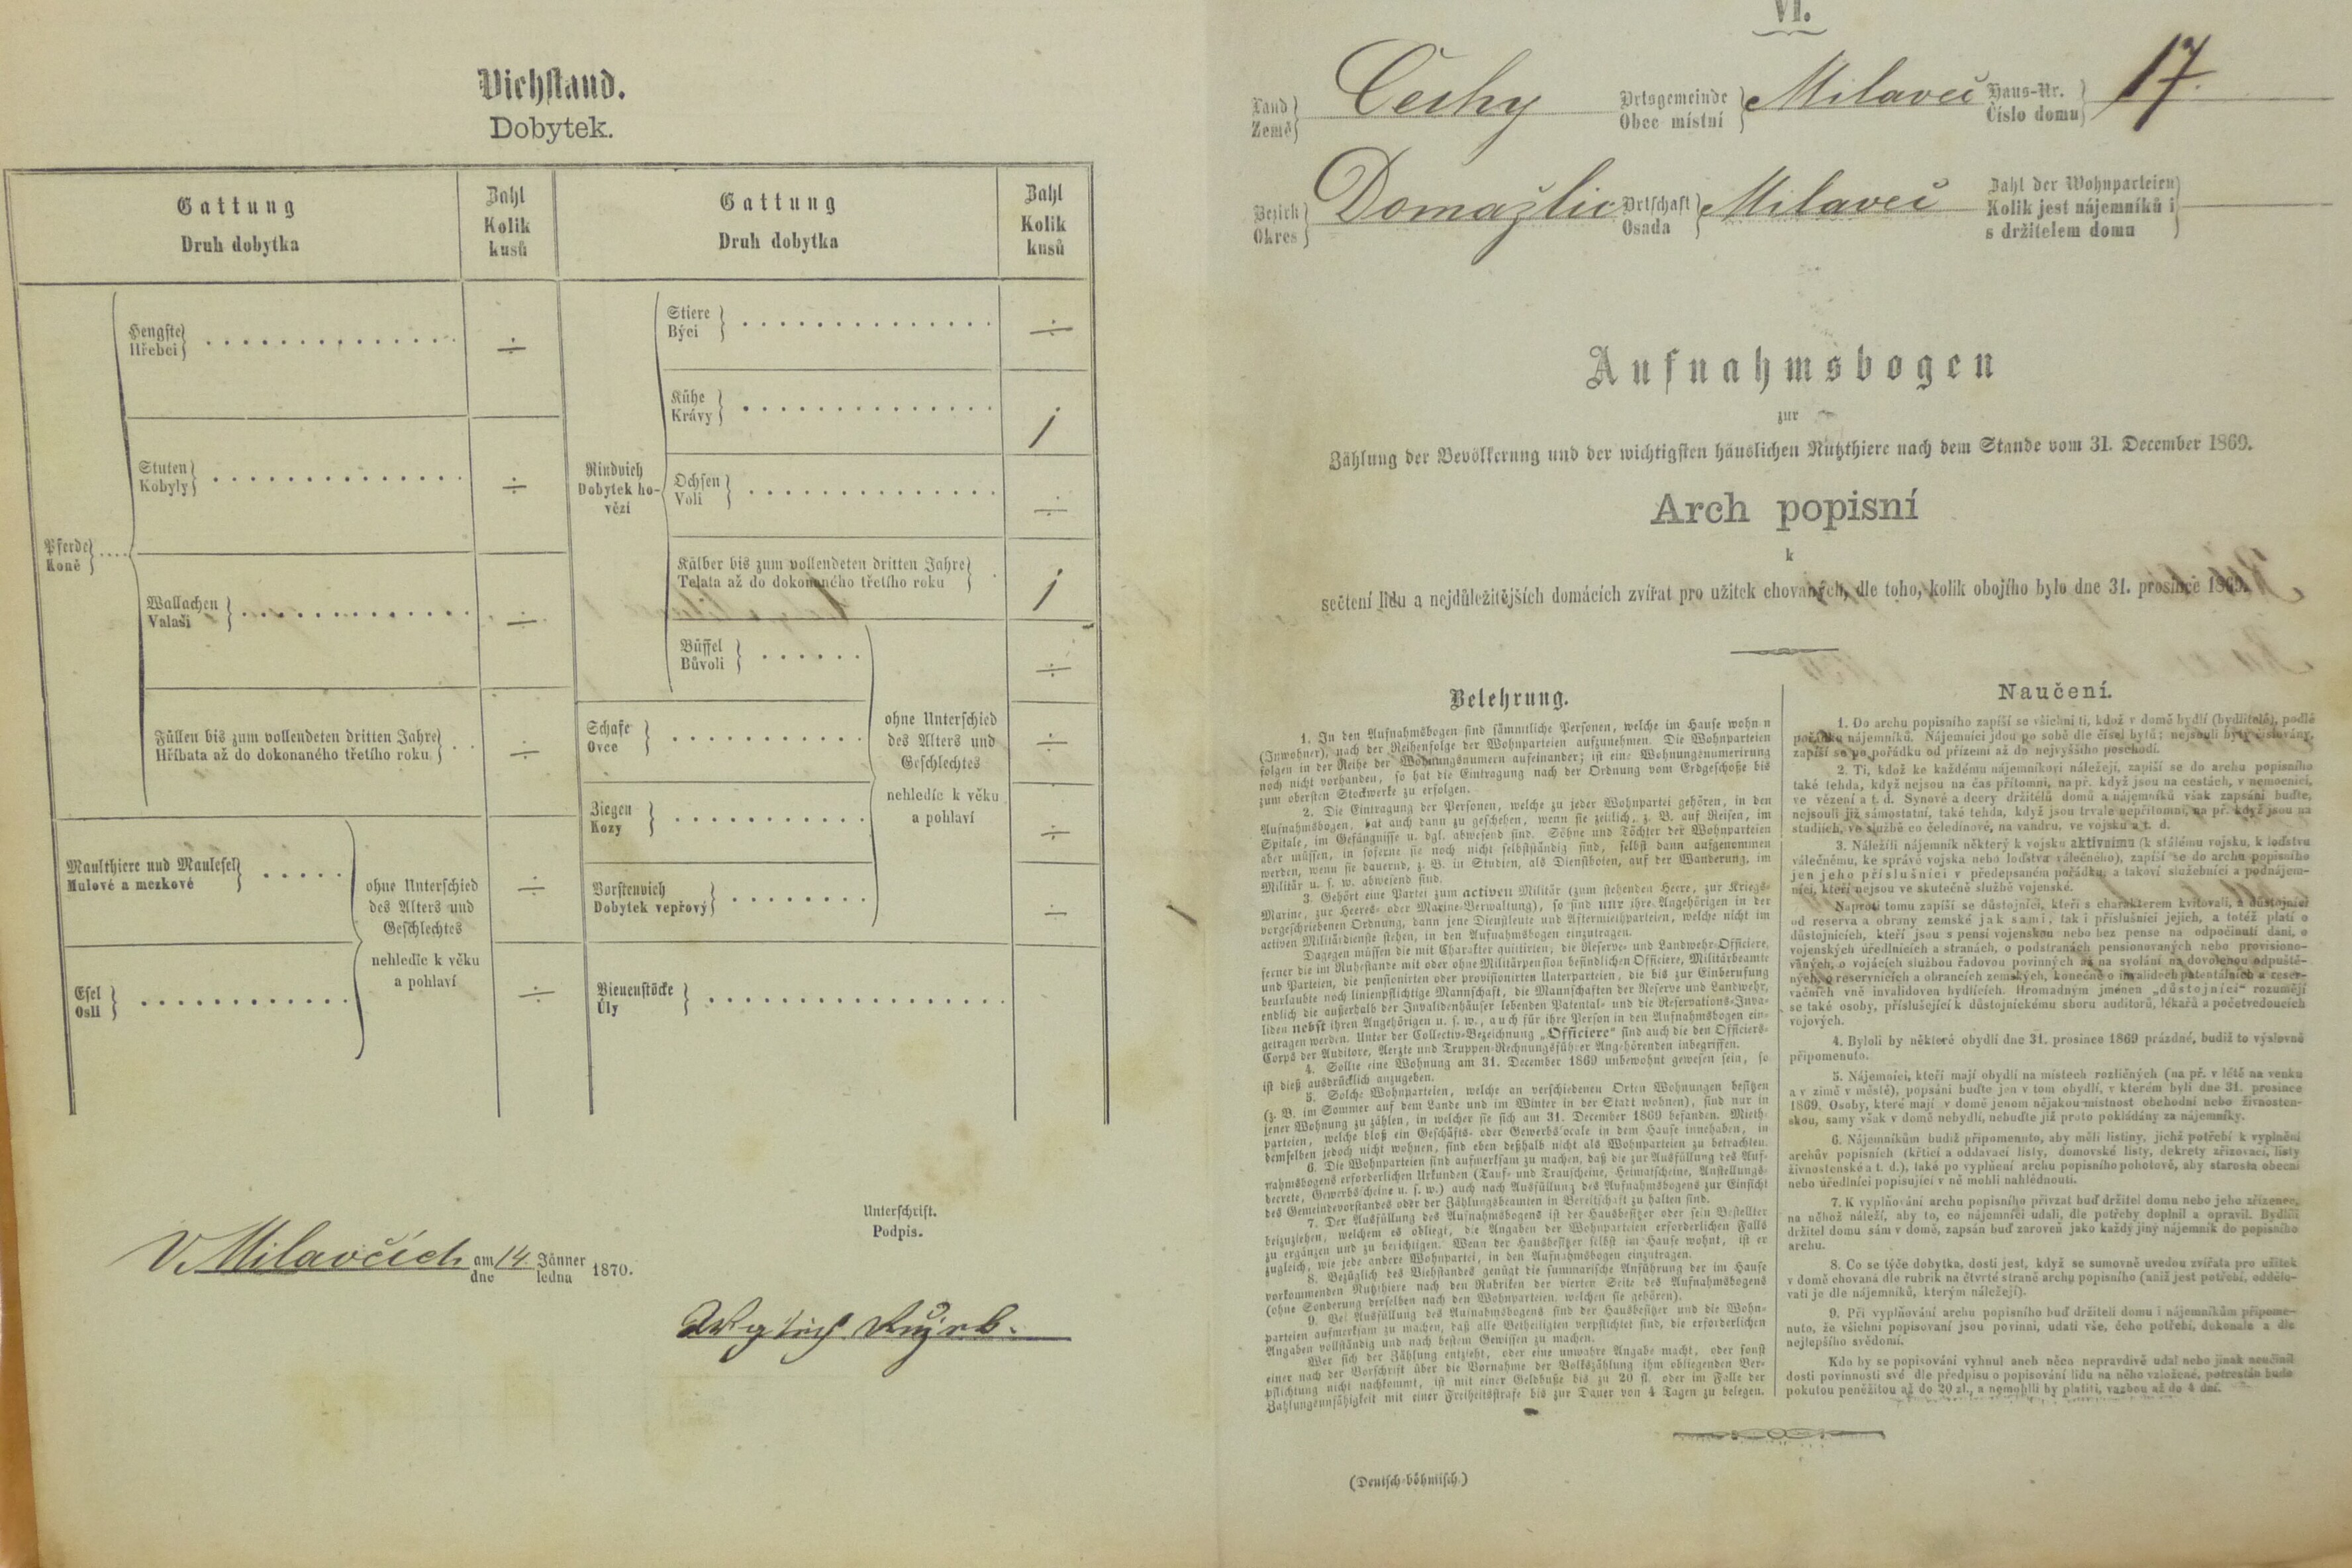 Viehstand.
Dobytek.
Gattung
Druh dobytka
Zahl
Kolik
kusů
Gattung
Druh dobytka
Zahl
Kolik
kusů
Pferde
Koně
Hengste
Hřebci
÷
Stuten
Kobyly
÷
Wallachen
Valaši
÷
Füllen bis zum vollendeten dritten Jahre
Hříbata až do dokonaného třetího roku
÷
Maulthiere und Maulesel
Mulové a mezkové
÷
Esel
Osli
÷
ohne Unterschied
des Alters und
Geschlechtes
nehledíc k věku
a pohlaví
Rindvieh
Dobytek ho-
vězí
Stiere
Býci
÷
Kühe
Krávy
1
Ochsen
Voli
÷
Kälber bis zum vollendeten dritten Jahre
Telata až do dokonaného třetího roku
1
Büffel
Bůvoli
÷
Schafe
Ovce
÷
Ziegen
Kozy
÷
Borstenvieh
Dobytek vepřový
÷
ohne Unterschied
des Alters und
Geschlechtes
nehledíc k věku
a pohlaví
Bienenstöcke
Úly
V Milavčích am 14. Jänner 1870.
dne ledna
Unterschrift.
Podpis.
VI.
Land
Země
Čechy
Ortsgemeinde
Obec místní
Milavče
Haus-Nr.
Číslo domu
17.
Bezirk
Okres
Domažlic
Ortschaft
Osada
Milavče
Zahl der Wohnparteien
Kolik jest nájemníků i
s držitelem domu
Aufnahmsbogen
zur
Zählung der Bevölkerung und der wichtigsten häuslichen Nutzthiere nach dem Stande vom 31. December 1869.
Arch popisní
k
sečtení lidu a nejdůležitějších domácích zvířat pro užitek chovaných, dle toho, kolik obojího bylo dne 31. prosince 1869.
Belehrung.
1. In den Aufnahmsbogen sind sämmtliche Personen, welche im Hause wohn n
(Inwohner), nach der Reihenfolge der Wohnparteien aufzunehmen. Die Wohnparteien
folgen in der Reihe der Wohnungsnumern aufeinander; ist eine Wohnungsnumerirung
noch nicht vorhanden, so hat die Eintragung nach der Ordnung vom Erdgeschoße bis
zum obersten Stockwerke zu erfolgen.
2. Die Eintragung der Personen, welche zu jeder Wohnpartei gehören, in den
Aufnahmsbogen, hat auch dann zu geschehen, wenn sie zeitlich, z. B. auf Reisen, im
Spitale, im Gefängnisse u. dgl. abwesend sind. Söhne und Töchter der Wohnparteien
aber müssen, in soferne sie noch nicht selbstständig sind, selbst dann aufgenommen
werden, wenn sie dauernd, z. B. in Studien, als Dienstboten, auf der Wanderung, im
Militär u. s. w. abwesend sind.
3. Gehört eine Partei zum activen Militär (zum stehenden Heere, zur Kriegs-
Marine, zur Heeres- oder Marine-Verwaltung), so sind nur ihre Angehörigen in der
vorgeschriebenen Ordnung, dann jene Dienstleute und Aftermiethparteien, welche nicht im
activen Militärdienste stehen, in den Aufnahmsbogen einzutragen.
Dagegen müssen die mit Charakter quittirten, die Reserve- und Landwehr-Officiere,
ferner die im Ruhestande mit oder ohne Militärpension befindlichen Officiere, Militärbeamte
und Parteien, die pensionirten oder provisionirten Unterparteien, die bis zur Einberufung
beurlaubte noch linienpflichtige Mannschaft, die Mannschaften der Reserve und Landwehr,
endlich die außerhalb der Invalidenhäuser lebenden Patental- und die Reservations-Inva-
liden nebst ihren Angehörigen u. s. w., auch für ihre Person in den Aufnahmsbogen ein-
getragen werden. Unter der Collectiv-Bezeichnung „Officiere“ sind auch die den Officiers-
Corps der Auditore, Aerzte und Truppen-Rechnungsführer Angehörenden inbegriffen.
4. Sollte eine Wohnung am 31. December 1869 unbewohnt gewesen sein, so
ist dieß ausdrücklich anzugeben.
5. Solche Wohnparteien, welche an verschiedenen Orten Wohnungen besitzen
(z. B. im Sommer auf dem Lande und im Winter in der Stadt wohnen), sind nur in
jener Wohnung zu zählen, in welcher sie sich am 31. December 1869 befanden. Mieth-
parteien, welche bloß ein Geschäfts- oder Gewerbslocale in dem Hause innehaben, in
demselben jedoch nicht wohnen, sind eben deßhalb nicht als Wohnparteien zu betrachten.
6. Die Wohnparteien sind aufmerksam zu machen, daß die zur Ausfüllung des Auf-
nahmsbogens erforderlichen Urkunden (Tauf- und Trauscheine, Heimatscheine, Anstellungs-
decrete, Gewerbsscheine u. s. w.) auch nach Ausfüllung des Aufnahmsbogens zur Einsicht
des Gemeindevorstandes oder der Zählungsbeamten in Bereitschaft zu halten sind.
7. Der Ausfüllung des Aufnahmsbogens ist der Hausbesitzer oder sein Bestellter
beizuziehen, welchem es obliegt, die Angaben der Wohnparteien erforderlichen Falls
zu ergänzen und zu berichtigen. Wenn der Hausbesitzer selbst im Hause wohnt, ist er
zugleich, wie jede andere Wohnpartei, in den Aufnahmsbogen einzutragen.
8. Bezüglich des Viehstandes genügt die summarische Anführung der im Hause
vorkommenden Nutzthiere nach den Rubriken der vierten Seite des Aufnahmsbogens
(ohne Sonderung derselben nach den Wohnparteien, welchen sie gehören).
9. Bei Ausfüllung des Aufnahmsbogens sind der Hausbesitzer und die Wohn-
parteien aufmerksam zu machen, daß alle Betheiligten verpflichtet sind, die erforderlichen
Angaben vollständig und nach bestem Gewissen zu machen.
Wer sich der Zählung entzieht, oder eine unwahre Angabe macht, oder sonst
einer nach der Vorschrift über die Vornahme der Volkszählung ihm obliegenden Ver-
pflichtung nicht nachkommt, ist mit einer Geldbuße bis zu 20 fl. oder im Falle der
Zahlungsunfähigkeit mit einer Freiheitsstrafe bis zur Dauer von 4 Tagen zu belegen.
Naučení.
1. Do archu popisního zapíší se všichni ti, kdož v domě bydlí (bydlitelé), podlé
pořádku nájemníků. Nájemníci jdou po sobě dle čísel bytů; nejsouli byty číslovány,
zapíší se po pořádku od přízemí až do nejvyššího poschodí.
2. Ti, kdož ke každému nájemníkovi náležejí, zapíší se do archu popisního
také tehda, když nejsou na čas přítomni, na př. když jsou na cestách, v nemocnici,
ve vězení a t. d. Synové a dcery držitelů domů a nájemníků však zapsáni buďte,
nejsouli již sámostatní, také tehda, když jsou trvale nepřítomni, na př. když jsou na
studiích, ve službě co čeledínové, na vandru, ve vojsku a t. d.
3. Náležíli nájemník některý k vojsku aktivnímu (k stálému vojsku, k loďstvu
válečnému, ke správě vojska nebo loďstva válečného), zapíší se do archu popisního
jen jeho příslušníci v předepsaném pořádku, a takoví služebníci a podnájem-
níci, kteří nejsou ve skutečné službě vojenské.
Naproti tomu zapíší se důstojníci, kteří s charakterem kvitovali, a důstojníci
od reserva a obrany zemské jak sami, tak i příslušníci jejich, a totéž platí o
důstojnících, kteří jsou s pensí vojenskou nebo bez pense na odpočinutí dáni, o
vojenských úřednících a stranách, o podstranách pensionovaných nebo provisiono-
vaných, o vojácích službou řadovou povinných až na svolání na dovolenou odpuště-
ných, o reservnících a obrancích zemských, konečně o invalidech patentálních a reser-
vačních vně invalidoven bydlících. Hromadným jménem „důstojníci“ rozumějí
se také osoby, příslušející k důstojnickému sboru auditorů, lékařů a početvedoucích
vojových.
4. Byloli by některé obydlí dne 31. prosince 1869 prázdné, budiž to výslovně
připomenuto.
5. Nájemníci, kteří mají obydlí na místech rozličných (na př. v létě na venku
a v zimě v městě), popsáni buďte jen v tom obydlí, v kterém byli dne 31. prosince
1869. Osoby, které mají v domě jenom nějakou místnost obchodní nebo živnosten-
skou, samy však v domě nebydlí, nebuďte již proto pokládány za nájemníky.
6. Nájemníkům budiž připomenuto, aby měli listiny, jichž potřebí k vyplnění
archův popisních (křticí a oddavací listy, domovské listy, dekrety zřizovací, listy
živnostenské a t. d.), také po vyplnění archu popisního pohotově, aby starosta obecní
nebo úředníci popisující v ně mohli nahlédnouti.
7. K vyplňování archu popisního přivzat buď držitel domu nebo jeho zřízenec,
na něhož náleží, aby to, co nájemníci udali, dle potřeby doplnil a opravil. Bydlíli
držitel domu sám v domě, zapsán buď zároveň jako každý jiný nájemník do popisního
archu.
8. Co se týče dobytka, dosti jest, když se sumovně uvedou zvířata pro užitek
v domě chovaná dle rubrik na čtvrté straně archu popisního (aniž jest potřebí, oddělo-
vati je dle nájemníků, kterým náležejí).
9. Při vyplňování archu popisního buď držiteli domu i nájemníkům připome-
nuto, že všichni popisovaní jsou povinni, udati vše, čeho potřebí, dokonale a dle
nejlepšího svědomí.
Kdo by se popisování vyhnul aneb něco nepravdivě udal nebo jinak neučinil
dosti povinnosti své dle předpisu o popisování lidu na něho vzložené, potrestán bude
pokutou peněžitou až do 20 zl., a nemohlli by platiti, vazbou až do 4 dní.
(Deutsch-böhmisch.)